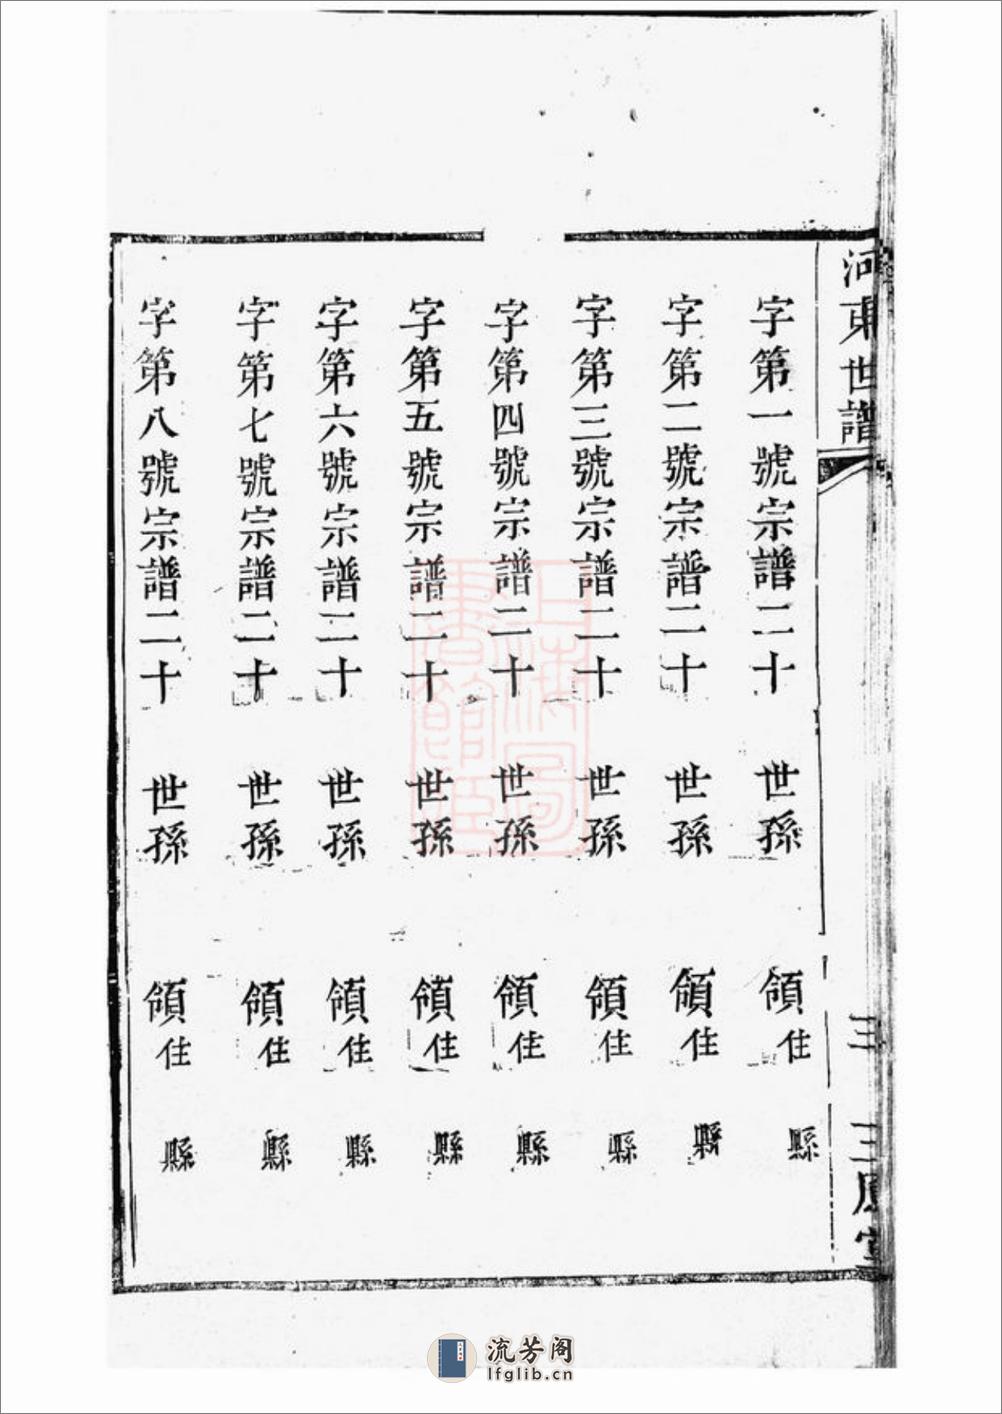 河東世譜
三
三鳳堂
字第一號宗譜二十 世孫 領住 縣
字第二號宗譜二十 世孫 領住 縣
字第三號宗譜二十 世孫 領住 縣
字第四號宗譜二十 世孫 領住 縣
字第五號宗譜二十 世孫 領住 縣
字第六號宗譜二十 世孫 領住 縣
字第七號宗譜二十 世孫 領住 縣
字第八號宗譜二十 世孫 領住 縣
上海圖書館藏
流芳阁
lfglib.cn